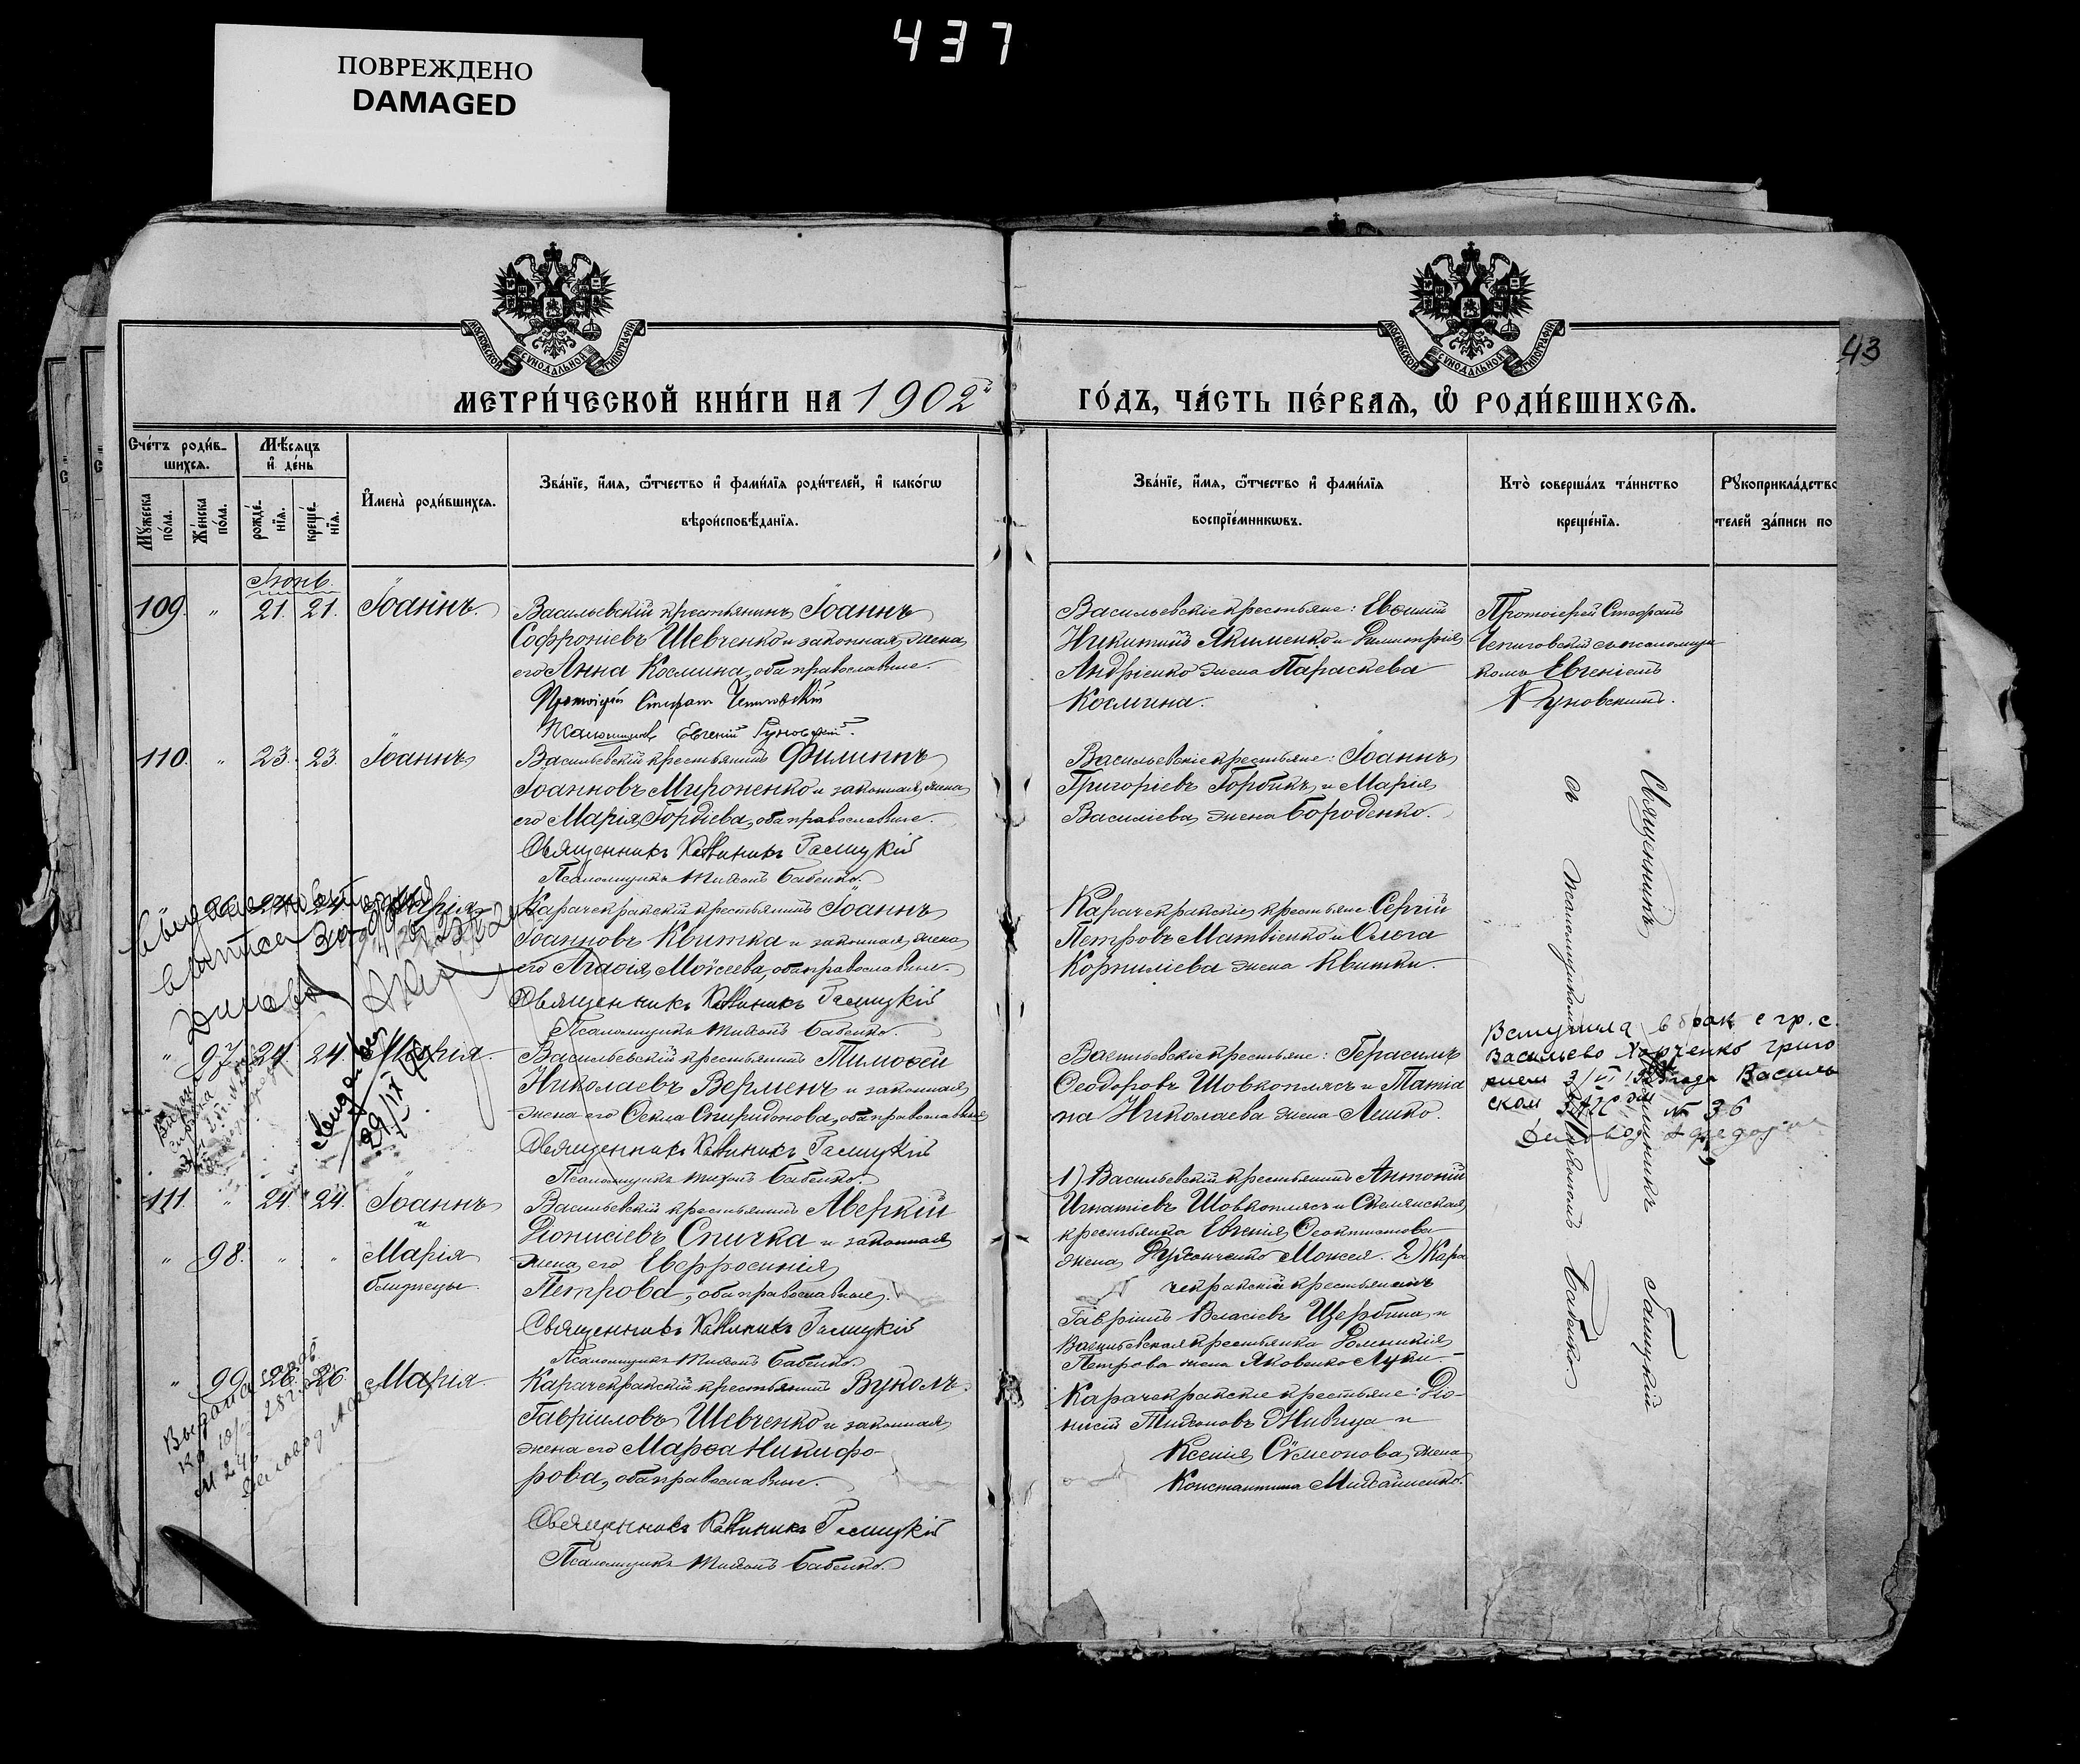 437
ПОВРЕЖДЕНО
DAMAGED
43
МОСКОВСКОЙ СѴНОДАЛЬНОЙ ТИПОГРАФІИ
МОСКОВСКОЙ СѴНОДАЛЬНОЙ ТИПОГРАФІИ
МЕТРИ́ЧЕСКОЙ КНИ́ГИ НА 1902й
ГО́ДЪ, ЧА́СТЬ ПЕ́РВАѦ, Ѡ҆ РОДИ́ВШИХСѦ.
Сче́тъ роди́в-
шихсѧ.
Мѣ́сѧцъ
и҆ де́нь
Мꙋ́жеска
по́ла.
Же́нска
по́ла.
рожде́-
нїѧ.
креще́-
нїѧ.
И҆мена̀ роди́вшихсѧ.
Зва́нїе, и҆́мѧ, ѻ҆́тчество и҆ фами́лїѧ роди́телей, и҆ како́гѡ
вѣроисповѣ́данїѧ.
Зва́нїе, и҆́мѧ, ѻ҆́тчество и҆ фами́лїѧ
воспрїе́мникѡвъ.
Кто̀ соверша́лъ та́инство
креще́нїѧ.
Рꙋкоприкла́дство
телей за́писи по
Іюнь.
109. " 21. 21. Іоаннъ.
Васильевскій крестьянинъ Іоаннъ
Софроніевъ Шевченко и законная жена
его Анна Космина, оба православные.
Протоіерей Стефанъ
Псаломщикъ Евгеній Руновскій.
Васильевскіе крестьяне: Евѳимій
Никитинъ Якименко и Димитрія
Андріенко жена Параскева
Космина.
Протоіерей Стефанъ
съ псаломщи
комъ Евгеніемъ
Руновскимъ.
110. " 23. 23. Іоаннъ
Васильевскій крестьянинъ Филиппъ
Іоанновъ Мироненко и законная жена
его Марія Гордіева, оба православные.
Священникъ Каллиникъ Галицкій
Псаломщикъ Тихонъ Бабенко.
Васильевскіе крестьяне: Іоаннъ
Григоріевъ Горбикъ и Марія
Василіева жена Бороденко.
Священникъ Галицкій
съ псаломщикомъ Бабенко
24. Марія
Карачекракскій крестьянинъ Іоаннъ
Іоанновъ Квитка и законная жена
его Агаѳія Моѵсеева, оба православные.
Священникъ Каллиникъ Галицкій
Псаломщикъ Тихонъ Бабенко.
Карачекракскіе крестьяне Сергій
Петровъ Матвіенко и Ольга
Корниліева жена Квитки.
" 97. 24. 24. Марія.
Васильевскій крестьянинъ Тимоѳей
Николаевъ Верменъ и законная
жена его Ѳекла Спиридонова, оба православные
Священникъ Каллиникъ Галицкій
Псаломщикъ Тихонъ Бабенко.
Васильевскіе крестьяне: Герасимъ
Ѳеодоровъ Шовкоплясъ и Татіа
на Николаева жена Лешко.
Вступила в брак с гр. с.
Васильево Харченко Григо
рием
Василь
ском ЗАГС №36
111. " 24. 24. Іоаннъ
и
" 98. " " Марія
близнецы.
Васильевскій крестьянинъ Аверкій
Діонисіевъ Спичка и законная
жена его Евфросинія
Петрова, оба православные.
Священникъ Каллиникъ Галицкій
Псаломщикъ Тихонъ Бабенко.
1) Васильевскій крестьянинъ Антоній
Игнатіевъ Шовкоплясъ и
крестьянка Евгенія Ѳеоктистова
жена Моисея. 2) Кара
чекракскій крестьянинъ
Гавріилъ Власіевъ Щербина и
Васильевская крестьянка
Петрова жена Яковенко Луки.
" 99. 26. 26. Марія.
Карачекракскій крестьянинъ Вуколъ
Гавріиловъ Шевченко и законная
жена его Марѳа Никифо-
рова, оба православные.
Священникъ Каллиникъ Галицкій
Псаломщикъ Тихонъ Бабенко.
Карачекракскіе крестьяне: Діо-
нисій Тихоновъ Живица и
Ксенія Сѵмеонова жена
Константина Михайленко.